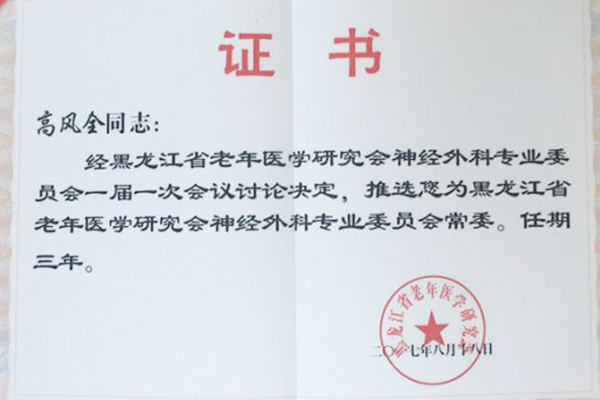 证书
高风全同志：
经黑龙江省老年医学研究会神经外科专业委
员会一届一次会议讨论决定，推选您为黑龙江省
老年医学研究会神经外科专业委员会常委。任期
三年。
黑龙江省老年医学研究会
二〇一七年八月十八日